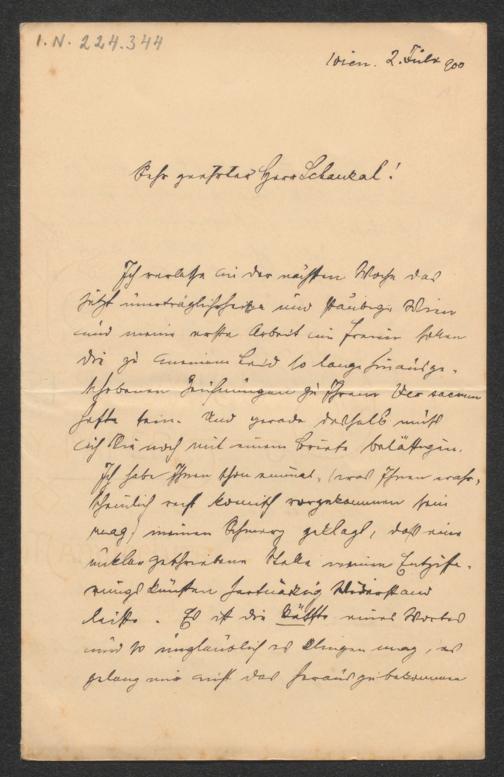 I. N. 224.344
Wien. 2. Juli 900
Sehr geehrter Herr Schaukal!
Ich verlasse in der nächsten Woche das
jetzt unerträglich heiße und staubige Wien
und meine erste Arbeit im Freien sollen
die zu meinem Leid so lange hinausge-
schobenen Zeichnungen zu Ihrem Ver sacrum
Hefte sein. Und gerade deshalb muß
ich Sie noch mit einem Briefe belästigen.
Ich habe Ihnen schon einmal, (was Ihnen wahr-
scheinlich recht komisch vorgekommen sein
mag) meinen Schmerz geklagt, daß eine
unklar geschriebene Stelle meinen Entziffe-
rungskünsten hartnäckig Widerstand
leiste. Es ist die Hälfte eines Wortes
und so unglaublich es klingen mag, es
gelang mir nicht das herauszubekommen